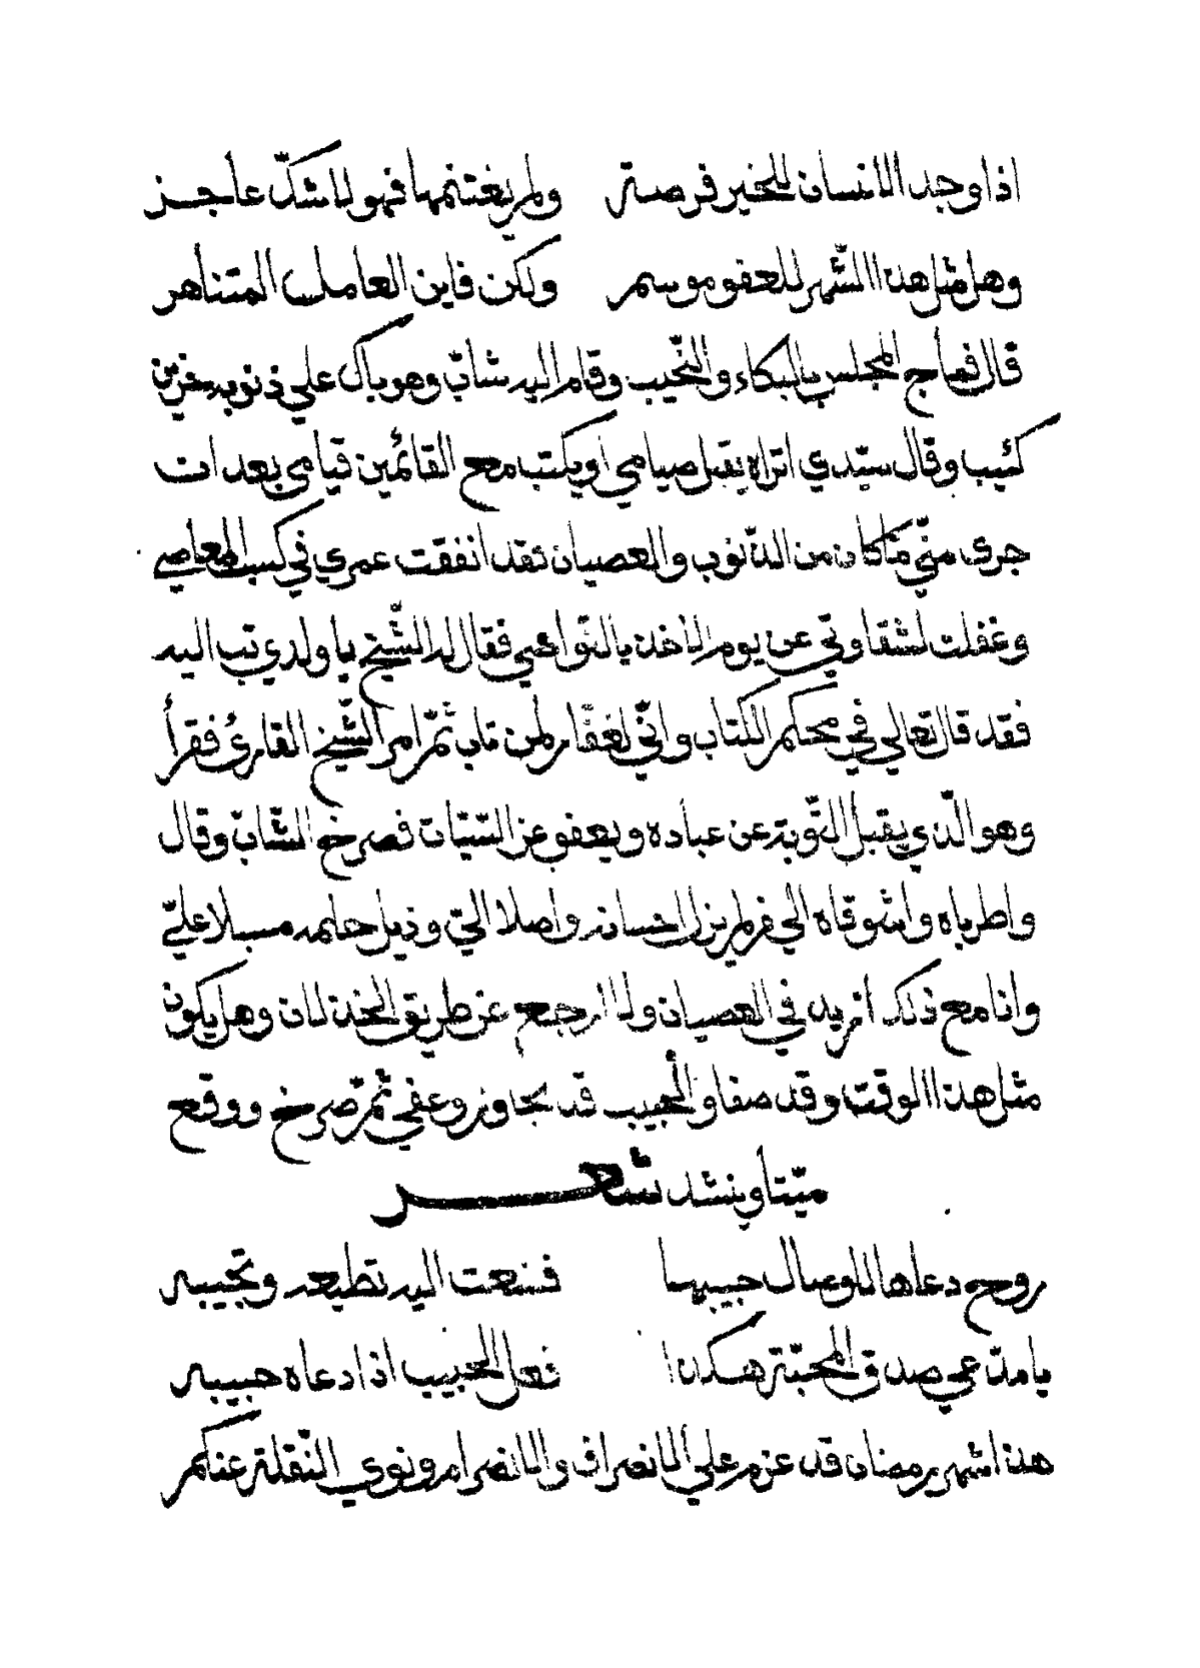 اذا وجد الانسان للخير فرصة ولم يغتنمها فهو لا شكّ عاجز
وهل مثل هذا الشّهر للعفو موسم ولكن فاين العامل المتناهز
قال فماج المجلس بالبكاء والنّحيب وقام اليه شابّ وهو باك علي ذنوبه حزين
كئيب وقال سيّدي اتراه يقبل صيامي او يكتب مع القائمين قيامي بعد ان
جرى منّي ما كان من الذّنوب والعصيان فقد انفقت عمري في كسب المعاصي
وغفلت لشقاوتي عن يوم الاخذ بالنّواصي فقال له الشّيخ يا ولدي تب اليه
فقد قال تعالي في محكم الكتاب وانّي لغفّار لمن تاب ثمّ امر الشّيخ القارئ فقرأ
وهو الّذي يقبل التّوبة عن عباده ويعفو عن السّيّات فصرخ الشّابّ وقال
واطرباه واشوقاه الي من لم يزل احسانه واصلا اليّ وذيل حلمه مسبلا عليّ
وانا مع ذلك أزيد في العصيان ولا ارجع عن طريق الخذلان وهل يكون
مثل هذا الوقت وقد صفا والحبيب قد تجاوز وعفي ثمّ صرخ ووقع
ميّتا وينشد شعر
روح دعاها للوصال حبيبها فسعت اليه تطيعه وتجيبه
يا مدّعي صدق المحبّة هكذا فعل الحبيب اذا دعاه حبيبه
هذا شهر رمضان قد عزم علي الانصراف والانصرام ونوي النّقلة عنكم